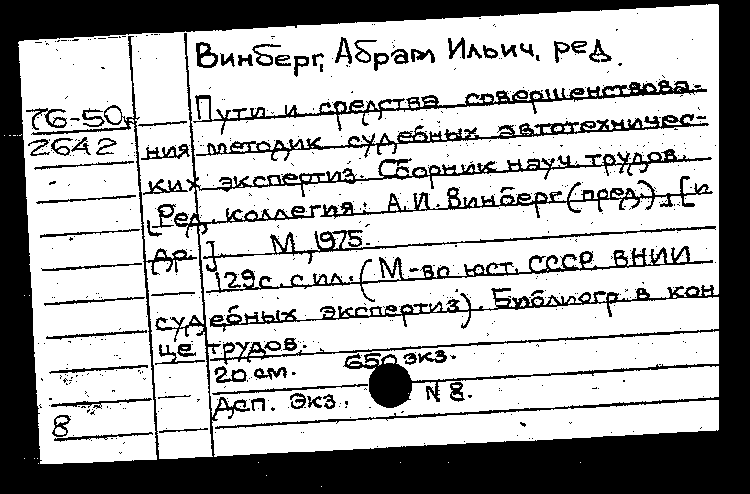 Винберг, Абрам Ильич, ред.
Пути и средства совершенствова-
76-50
2642
ния методик судебных автотехничес-
ких экспертиз. Сборник науч. трудов.
[Ред. коллегия: А.И. Винберг (пред.), [и
др.] М., 1975.
129с. с ил. (М-во юст. СССР. ВНИИ
судебных экспертиз). Библиогр. в кон
це трудов.
20 см. 650 экз.
Деп. экз. N 8.
8